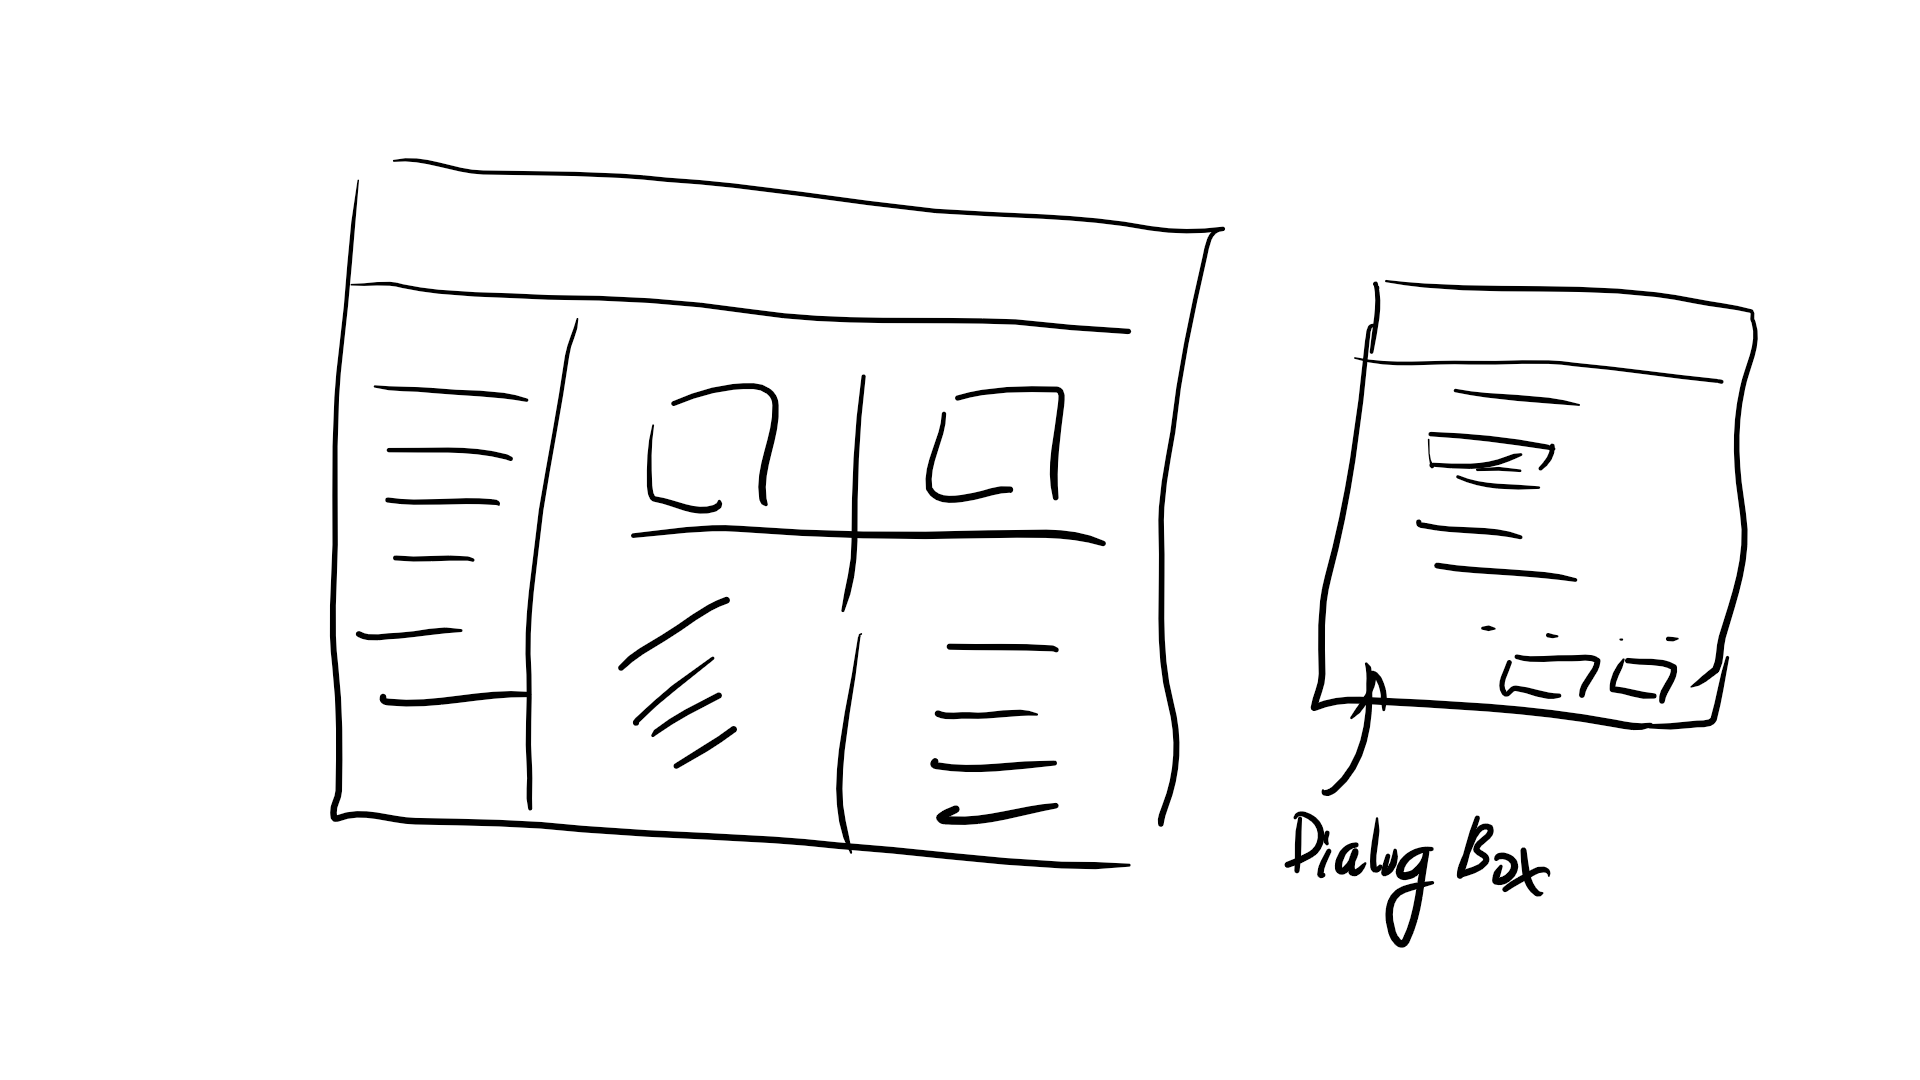 Dialog Box